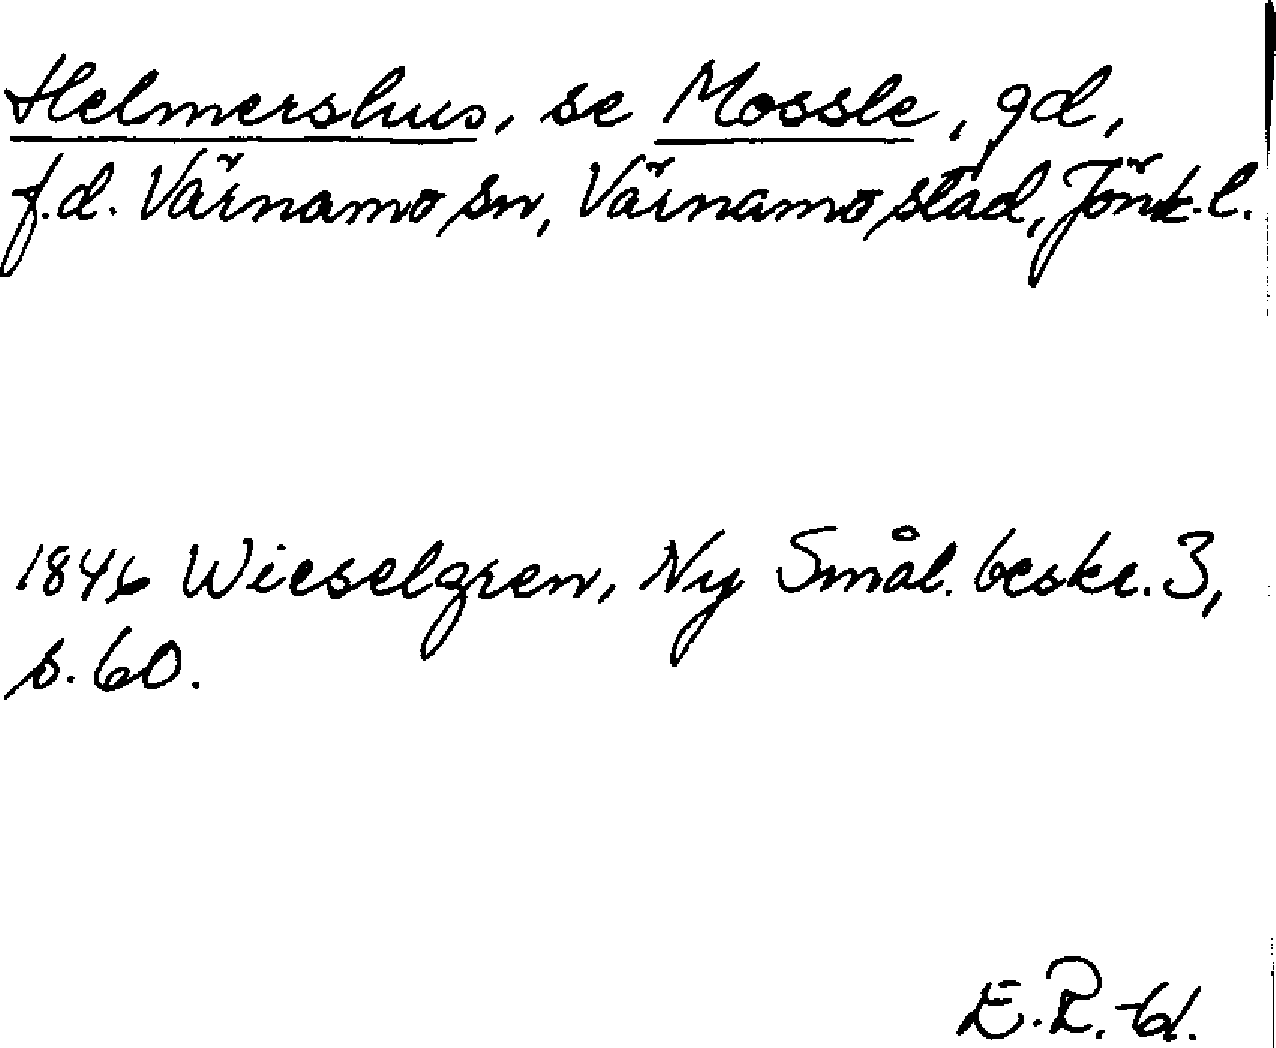 Helmershus, se Mossle, gd,
f.d. Värnamo sn, Värnamo stad, Jönk.l.
1846 Wieselgren, Ny Smål. beskr. 3,
s. 60.
E.R.-bl.